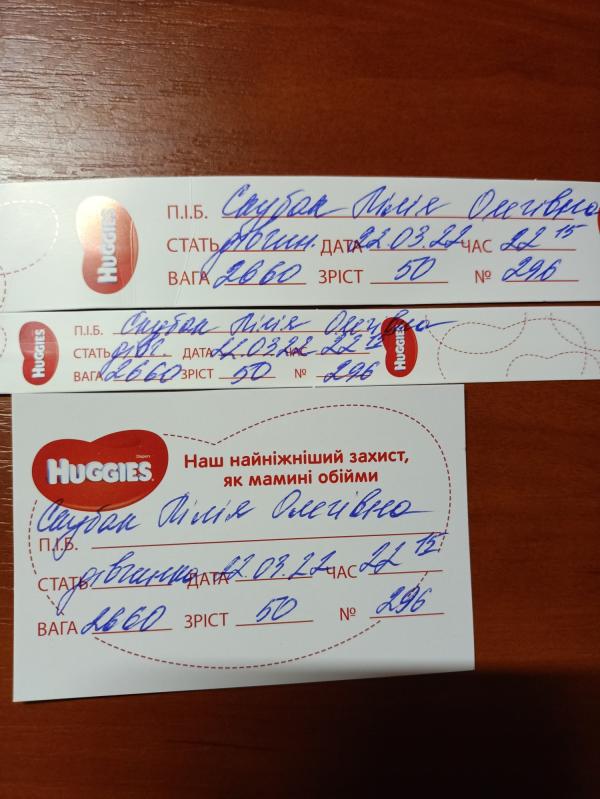 HUGGIES
П.І.Б. Скубак Лілія Олегівна
СТАТЬ дівчин. ДАТА 22.03.22 ЧАС 22 15
ВАГА 2660 ЗРІСТ 50 № 296
HUGGIES
П.І.Б. Скубак Лілія Олегівна
СТАТЬ дівч. ДАТА 22.03.22 ЧАС 22 15
ВАГА 2660 ЗРІСТ 50 № 296
HUGGIES
Diapers
HUGGIES
Наш найніжніший захист,
як мамині обійми
Скубак Лілія Олегівна
П.І.Б.
СТАТЬ дівчинка ДАТА 22.03.22 ЧАС 22 15
ВАГА 2660 ЗРІСТ 50 № 296